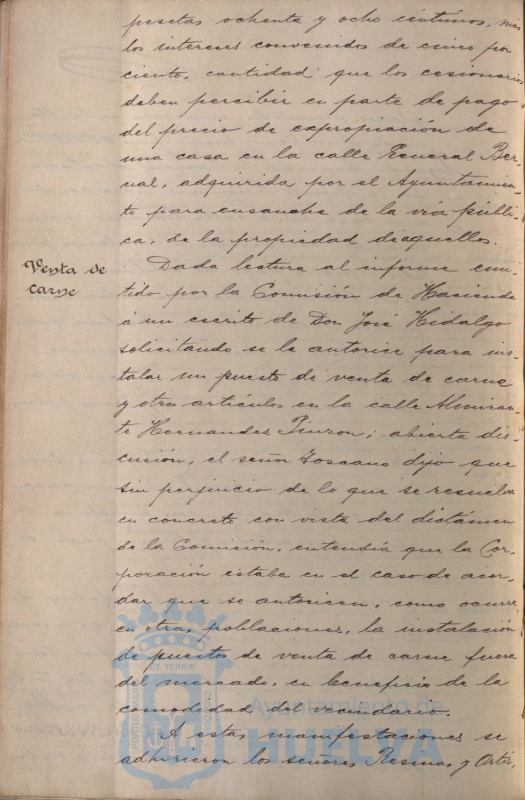 pesetas ochenta y ocho céntimos, más
los intereses convenidos de cinco por
ciento, cantidad que los cesionarios
deben percibir en parte de pago
del precio de expropiación de
una casa en la calle General Ber-
nal, adquirida por el Ayuntamien-
to para ensanche de la vía públi-
ca, de la propiedad de aquellos.
Venta de
carne
Dada lectura al informe emi-
tido por la Comisión de Hacienda
á un escrito de Don José Hidalgo
solicitando se le autorice para ins-
talar un puesto de venta de carne
y otros artículos en la calle Almiran-
te Hernandez Pinzon; abierta dis-
cusión, el señor Toscano dijo que
sin perjuicio de lo que se resuelva
en concreto con vista del dictámen
de la Comisión, entendía que la Cor-
poración estaba en el caso de acor-
dar que se autoricen, como ocurre
en otras poblaciones, la instalación
de puestos de venta de carne fuera
del mercado, en beneficio de la
comodidad del vecindario.
A estas manifestaciones se
adhirieron los señores Resmas y Ortiz,
PORTUS MARIS
ET TERRÆ
CUSTODIA
Ayuntamiento de
HUELVA